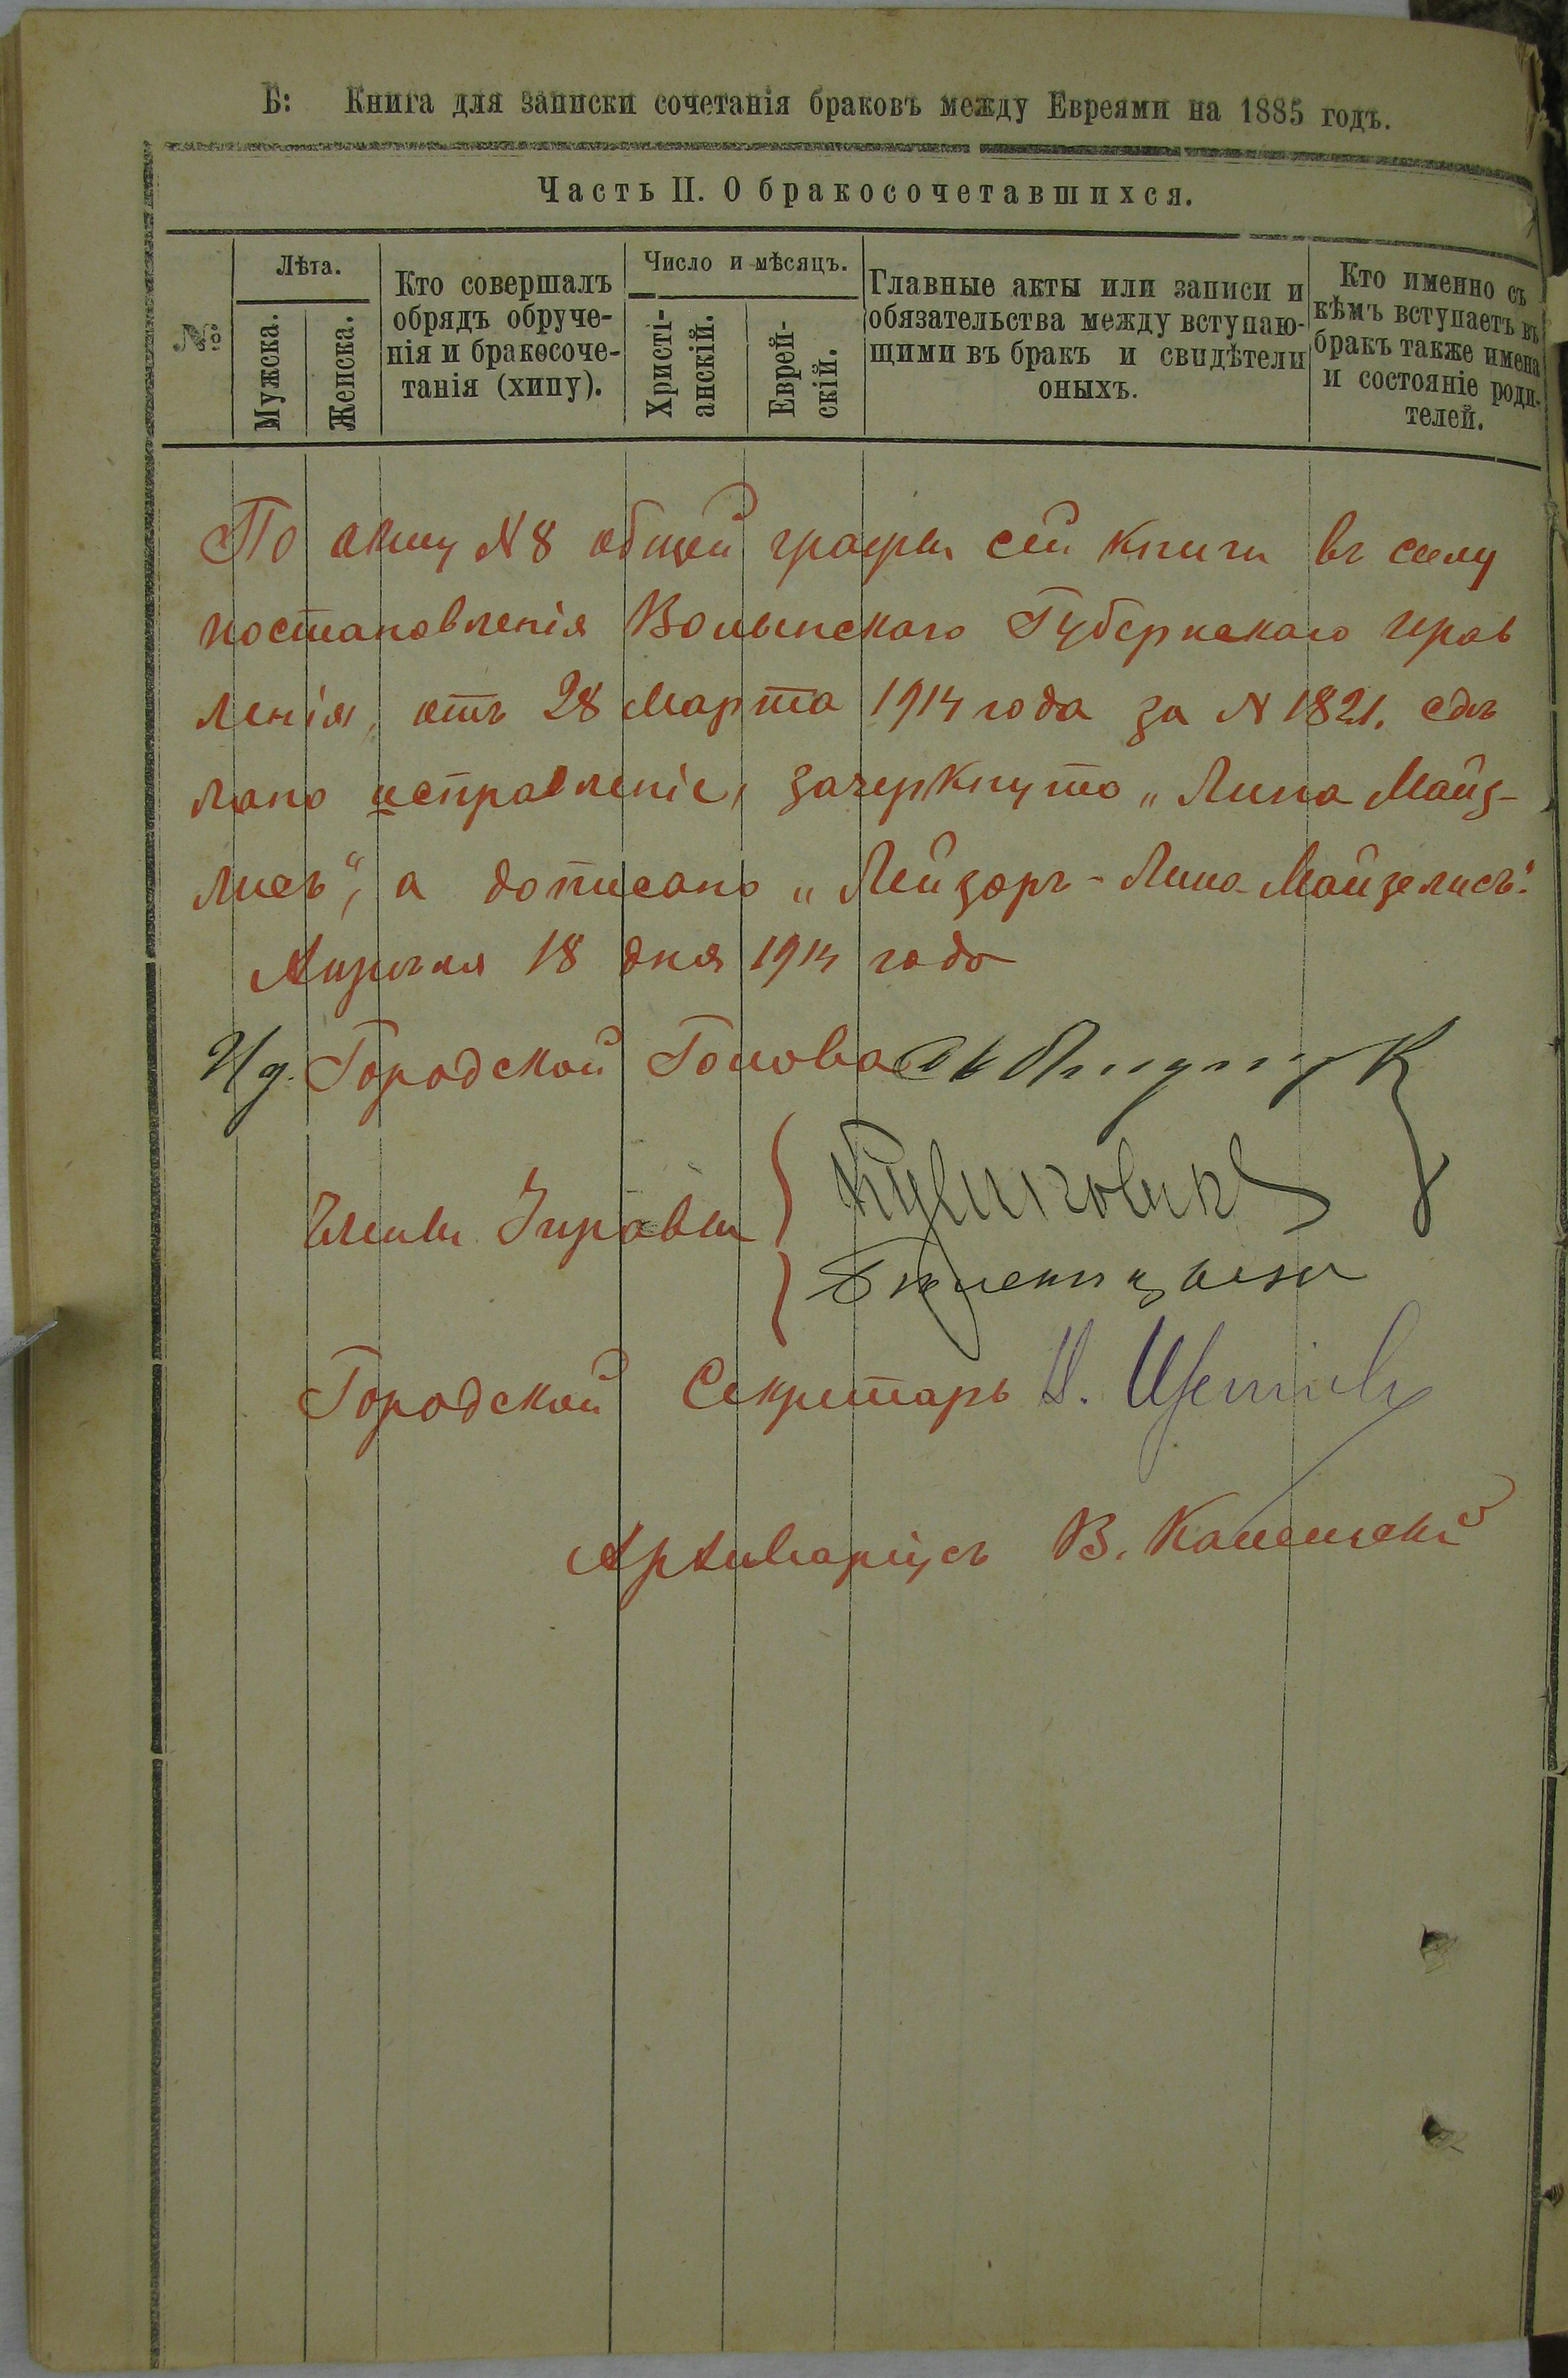 Б: Книга для записки сочетанія браковъ между Евреями на 1885 годъ.
Часть II. О бракосочетавшихся.
№
Лѣта.
Мужска.
Женска.
Кто совершалъ
обрядъ обруче-
нія и бракосоче-
танія (хипу).
Число и мѣсяцъ.
Христі-
анскій.
Еврей-
скій.
Главные акты или записи и
обязательства между вступаю-
щими въ бракъ и свидѣтели
оныхъ.
Кто именно съ
кѣмъ вступаетъ въ
бракъ также имена
и состояніе роди-
телей.
По акту N 8 общей графы сей книги въ силу
постановленія Волынскаго Губернскаго прав
ленія, отъ 28 Марта 1914 года за N 1821. сдѣ
лано исправленіе, зачеркнуто „Липа Майз-
лисъ“, а дописано „Лейзоръ-Липа Майзелисъ“.
Апрѣля 18 дня 1914 года
И д. Городской Голова
Члены Управы
Городской Секретарь
Архиваріусъ В. Каменскій